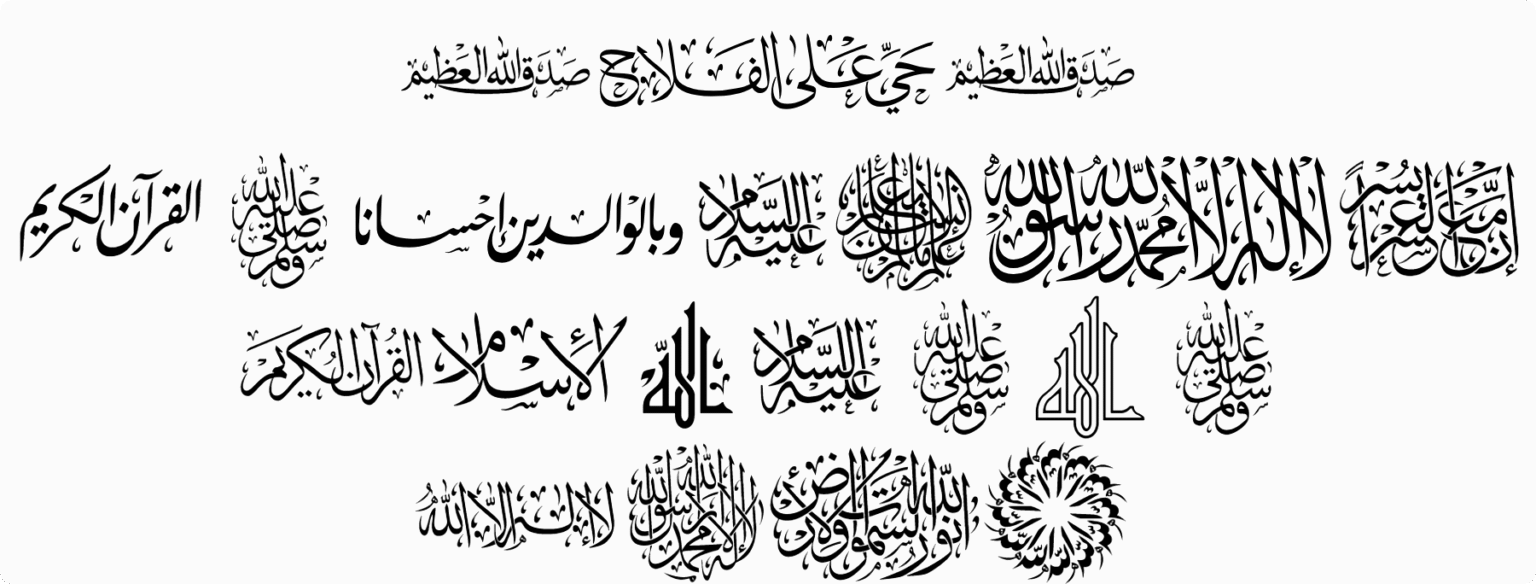 صدق الله العظيم حَيَّ عَلَى الفَلَاح صدق الله العظيم
إِنَّ مَعَ العُسْرِ يُسْرًا لا إله إلا الله محمد رسول الله علم الإنسان ما لم يعلم عليه السلام وبالوالدين إحسانا صلى الله عليه وسلم القرآن الكريم
صلى الله عليه وسلم الله صلى الله عليه وسلم عليه السلام الله الإسلام القرآن الكريم
الله نور السموات والأرض لا إله إلا الله محمد رسول الله لا إله إلا الله